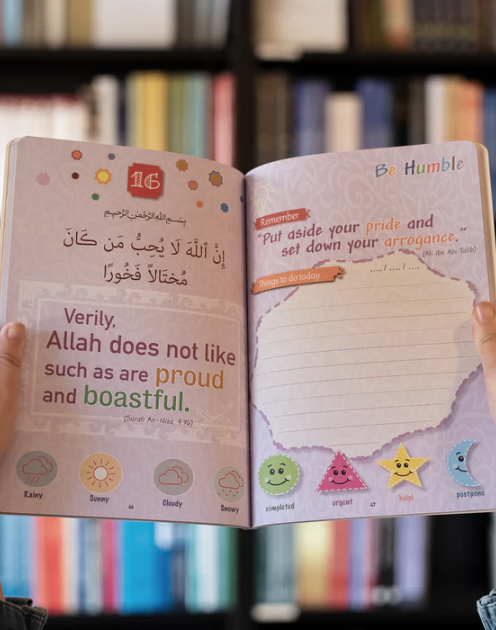 16
بِسْمِ اللهِ الرَّحْمٰنِ الرَّحِيْمِ
إِنَّ ٱللَّهَ لَا يُحِبُّ مَن كَانَ
مُخْتَالاً فَخُورًا
Verily,
Allah does not like
such as are proud
and boastful.
(Surah An-Nisa, 4:36)
Rainy
Sunny
Cloudy
Snowy
46
Be Humble
Remember
"Put aside your pride and
set down your arrogance."
(Ali Ibn Abi Talib)
Things to do today ...
.... / .... / ....
completed
urgent
help!
postpone
47